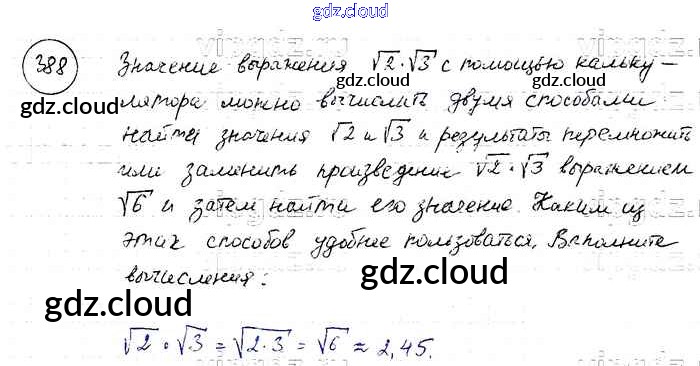 gdz.cloud
388 Значение выражения √2·√3 с помощью кальку-
gdz.cloud gdz.cloud
лятора можно вычислить двумя способами
найти значения √2 и √3 и результаты перемножить
или заменить произведение √2·√3 выражением
√6 и затем найти его значение. Каким из
этих способов удобнее пользоваться. Выполните
вычисления:
gdz.cloud gdz.cloud
√2 · √3 = √2·3 = √6 ≈ 2,45.
gdz.cloud